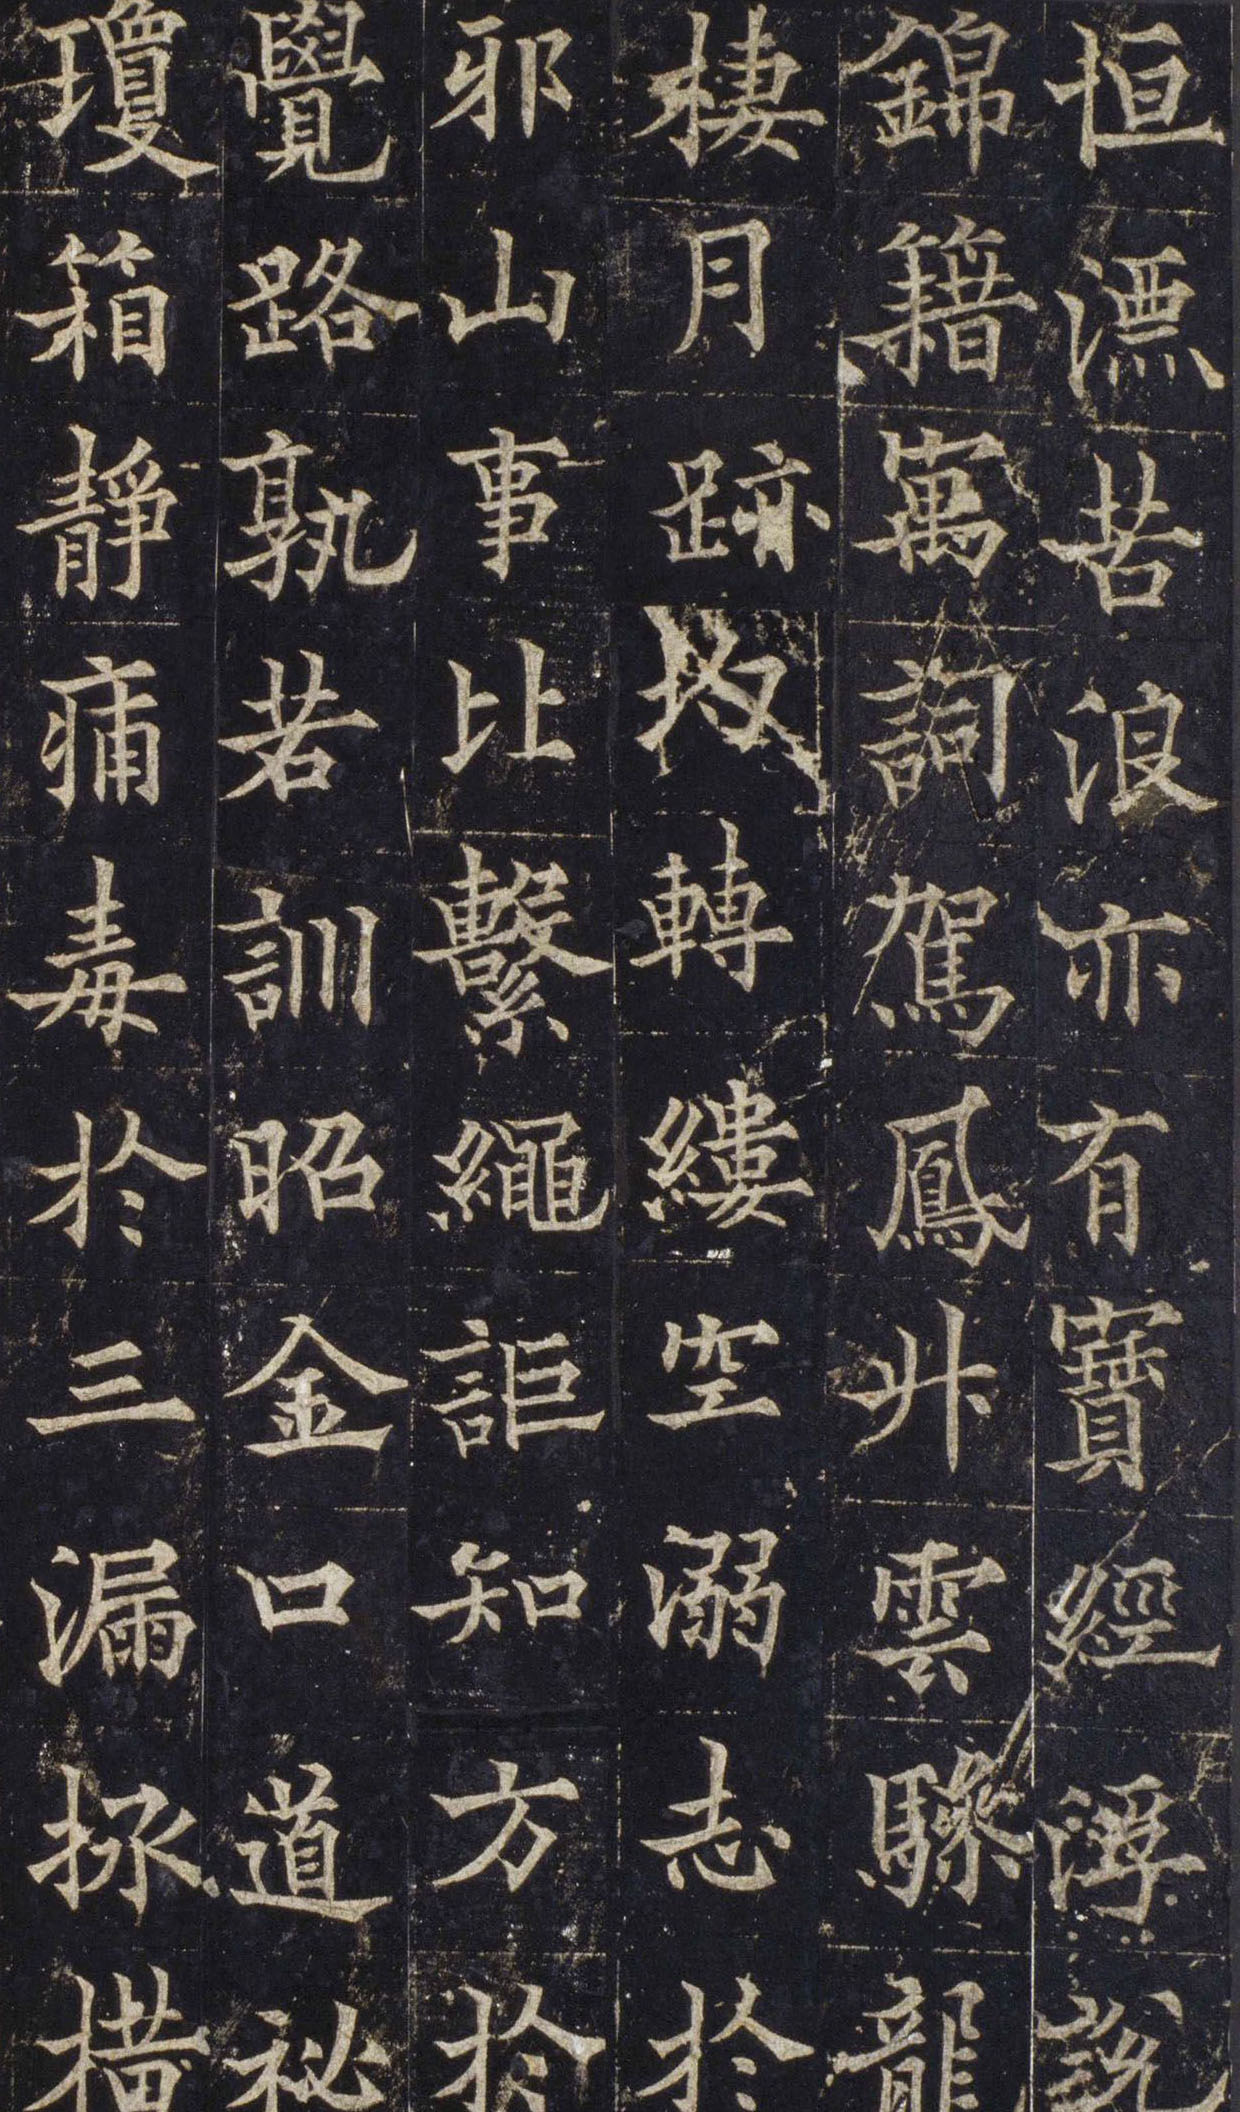 恒漂苦浪亦有寶經浮説
錦籍寓詞駕鳳升雲驂龍
棲月跡均轉縷空溺志於
邪山事比繫繩詎知方於
覺路孰若訓昭金口道祕
瓊箱靜痛毒於三漏拯横